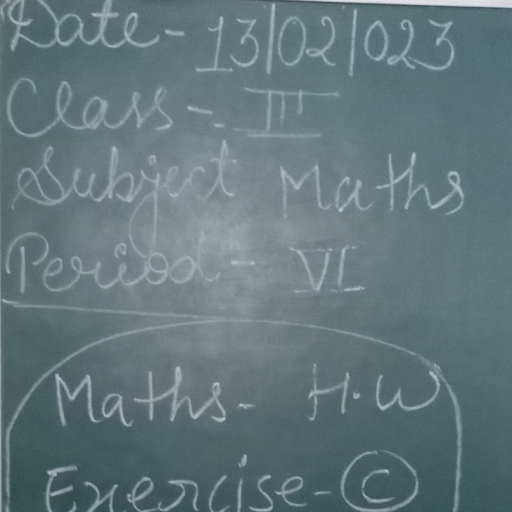 Date - 13/02/023
Class - III
Subject Maths
Period - VI
Maths - H.W
Exercise - C